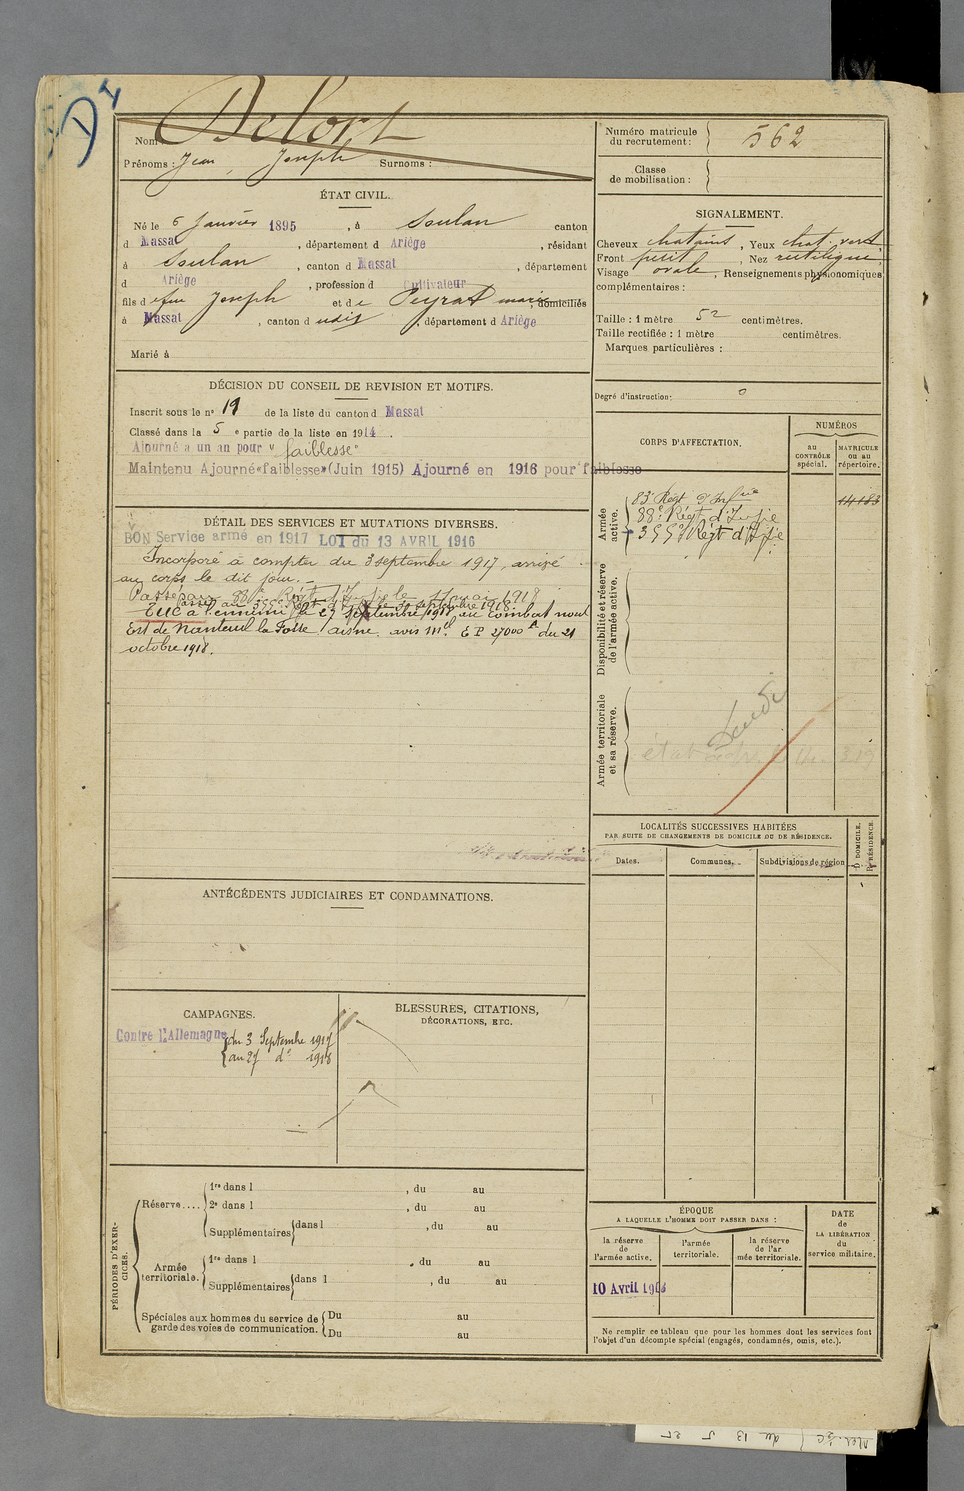 D
Nom : Delort
Prénoms : Jean, Joseph Surnoms :
ÉTAT CIVIL.
Né le 6 Janvier 1895, à Soulan canton
d Massat, département d Ariège, résidant
à Soulan, canton d Massat, département
d Ariège, profession d Cultivateur
fils d efeu Joseph et d e Peyrat marie, domiciliés
à Massat, canton d udit, département d Ariège
Marié à
DÉCISION DU CONSEIL DE REVISION ET MOTIFS.
Inscrit sous le n° 19 de la liste du canton d Massat
Classé dans la 5 e partie de la liste en 1914.
Ajourné a un an pour "faiblesse"
Maintenu Ajourné «faiblesse» (Juin 1915) Ajourné en 1916 pour faiblesse
DÉTAIL DES SERVICES ET MUTATIONS DIVERSES.
BON Service armé en 1917 LOI du 13 AVRIL 1916
Incorporé à compter du 3 septembre 1917, arrivé
au corps le dit jour. —
Passé au 88e Regt d'Infie le mai 1918
au 355e Regt d' septembre 1918
Tué à l'ennemi le 27 septembre 1918 au combat nord
Est de Nanteuil la Fosse, aisne, avis mel E P 27000 du 21
octobre 1918.
ANTÉCÉDENTS JUDICIAIRES ET CONDAMNATIONS.
CAMPAGNES.
Contre l'Allemagne { du 3 Septembre 1917
au 27 do 1918
BLESSURES, CITATIONS,
DÉCORATIONS, ETC.
PÉRIODES D'EXER-
CICES.
Réserve....
1re dans l , du au
2e dans l , du au
Supplémentaires { dans l , du au
Armée
territoriale.
1re dans l , du au
Supplémentaires { dans l , du au
Spéciales aux hommes du service de
garde des voies de communication.
Du au
Du au
Numéro matricule
du recrutement : 562
Classe
de mobilisation :
SIGNALEMENT.
Cheveux chatains, Yeux chat. vert
Front petit, Nez rectiligne
Visage ovale, Renseignements physionomiques
complémentaires :
Taille : 1 mètre 52 centimètres.
Taille rectifiée : 1 mètre centimètres.
Marques particulières :
Degré d'instruction : 0
CORPS D'AFFECTATION.
NUMÉROS
au
CONTRÔLE
spécial.
MATRICULE
ou au
répertoire.
Armée
active.
83e Regt d'Infrie 14183
88e Régt d'Infie
355e Régt d'Infie
Disponibilité et réserve
de l'armée active.
Armée territoriale
et sa réserve.
LOCALITÉS SUCCESSIVES HABITÉES
PAR SUITE DE CHANGEMENTS DE DOMICILE OU DE RÉSIDENCE.
Dates. Communes. Subdivisions de région
D DOMICILE.
R RÉSIDENCE.
ÉPOQUE
A LAQUELLE L'HOMME DOIT PASSER DANS :
la réserve
de
l'armée active.
l'armée
territoriale.
la réserve
de l'ar
mée territoriale.
DATE
de
LA LIBÉRATION
du
service militaire.
10 Avril
Ne remplir ce tableau que pour les hommes dont les services font
l'objet d'un décompte spécial (engagés, condamnés, omis, etc.).